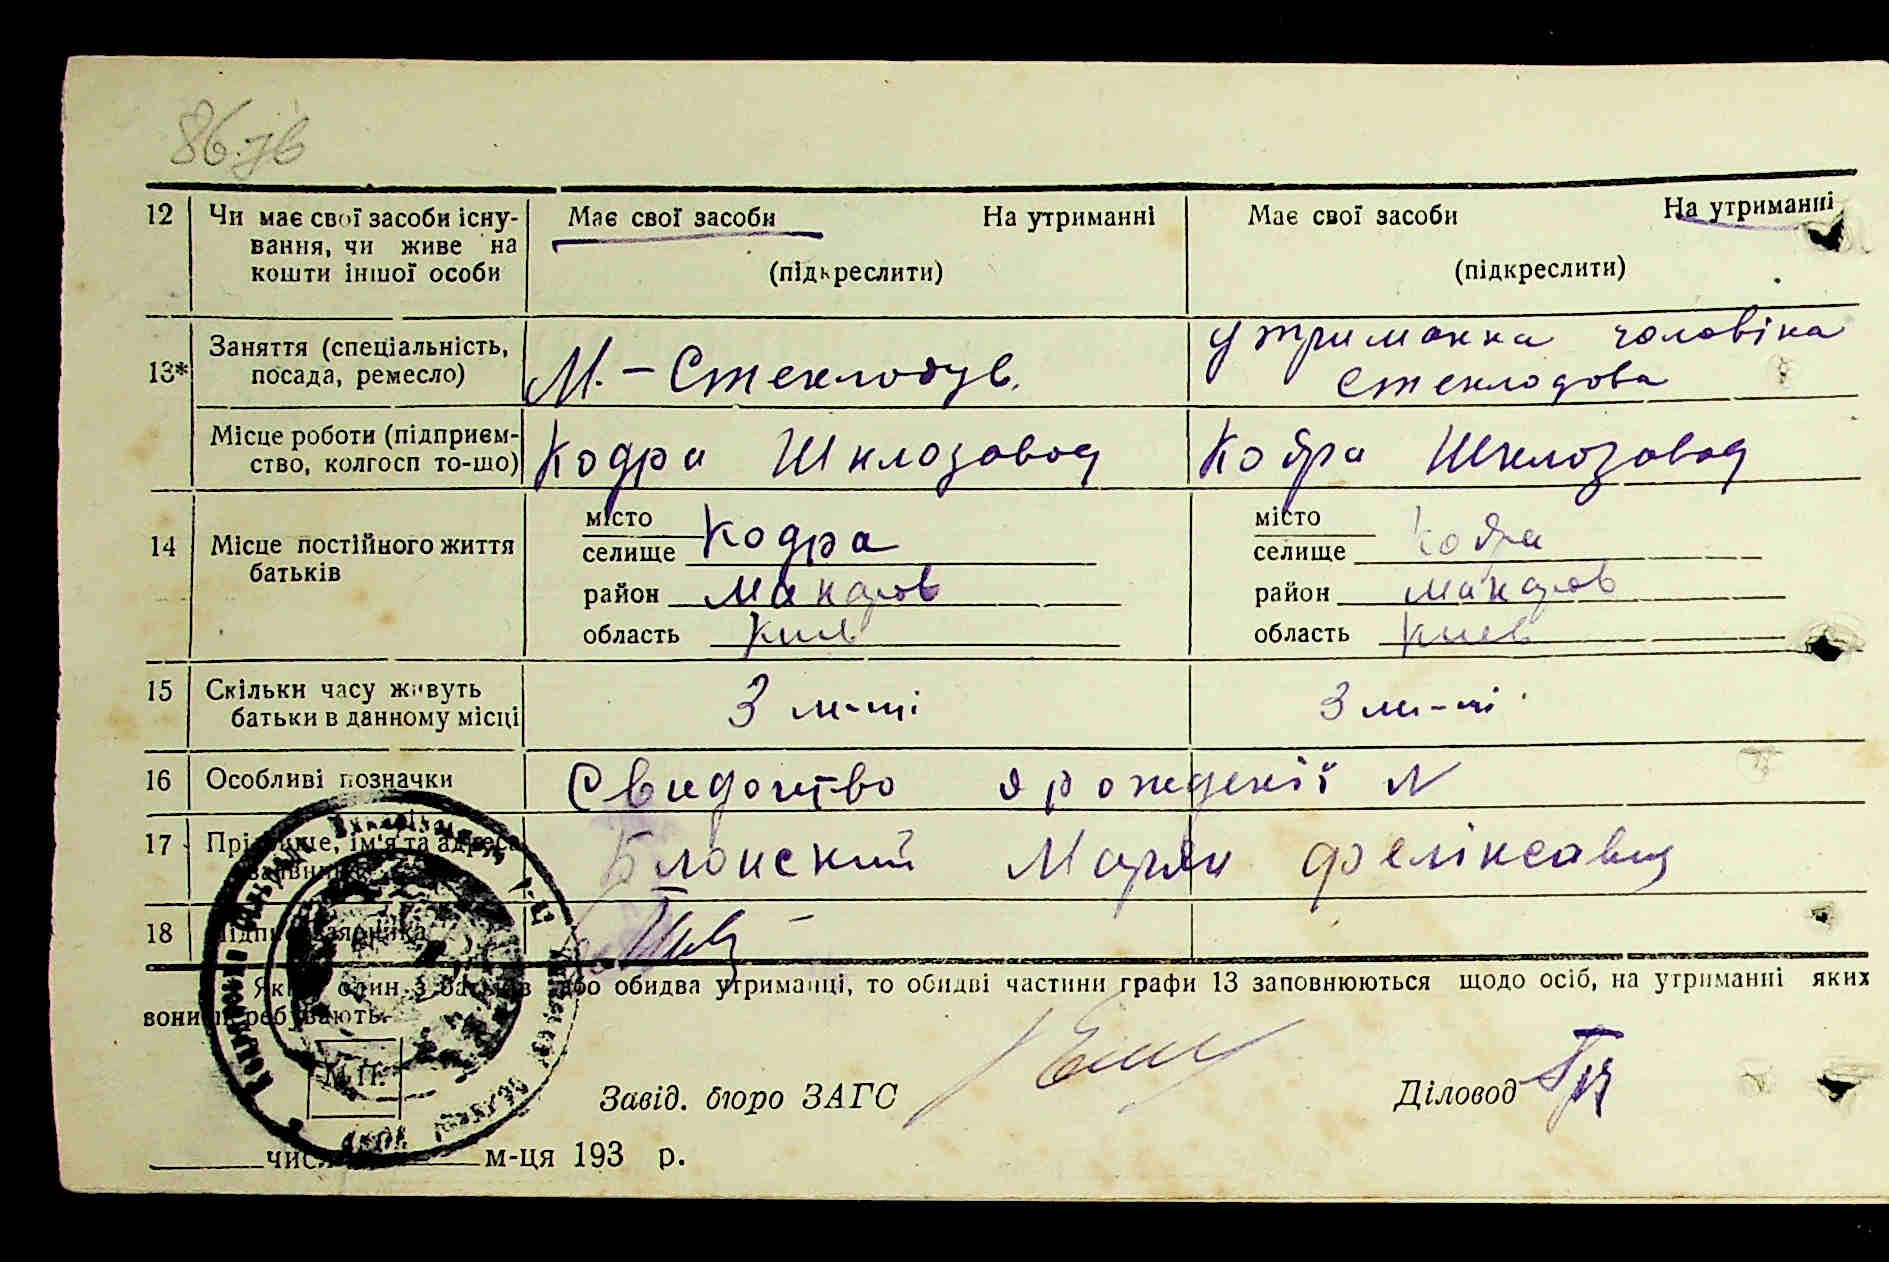 86зв
12 Чи має свої засоби існу- Має свої засоби На утриманні Має свої засоби На утриманні
вання, чи живе на
кошти іншої особи (підкреслити) (підкреслити)
13* Заняття (спеціальність, М. – Стеклодув. утриманка чоловіка
посада, ремесло) стеклодова
Місце роботи (підприєм- Кодра Шклозавод Кодра Шклозавод
ство, колгосп то-що)
14 Місце постійного життя місто місто
батьків селище Кодра селище Кодра
район Макаров район Макаров
область Киів область Киев
15 Скільки часу живуть 3 м-ці 3 м-ці
батьки в данному місці
16 Особливі позначки Свидоство рожденії N
17 Прізвище, ім'я та адреса Блонский Марян Феліксавич
заявника
18 Підпис заявника
Якщо один з батьків або обидва утриманці, то обидві частини графи 13 заповнюються щодо осіб, на утриманні яких
вони перебувають.
М.П.
Завід. бюро ЗАГС Діловод
числа м-ця 193 р.